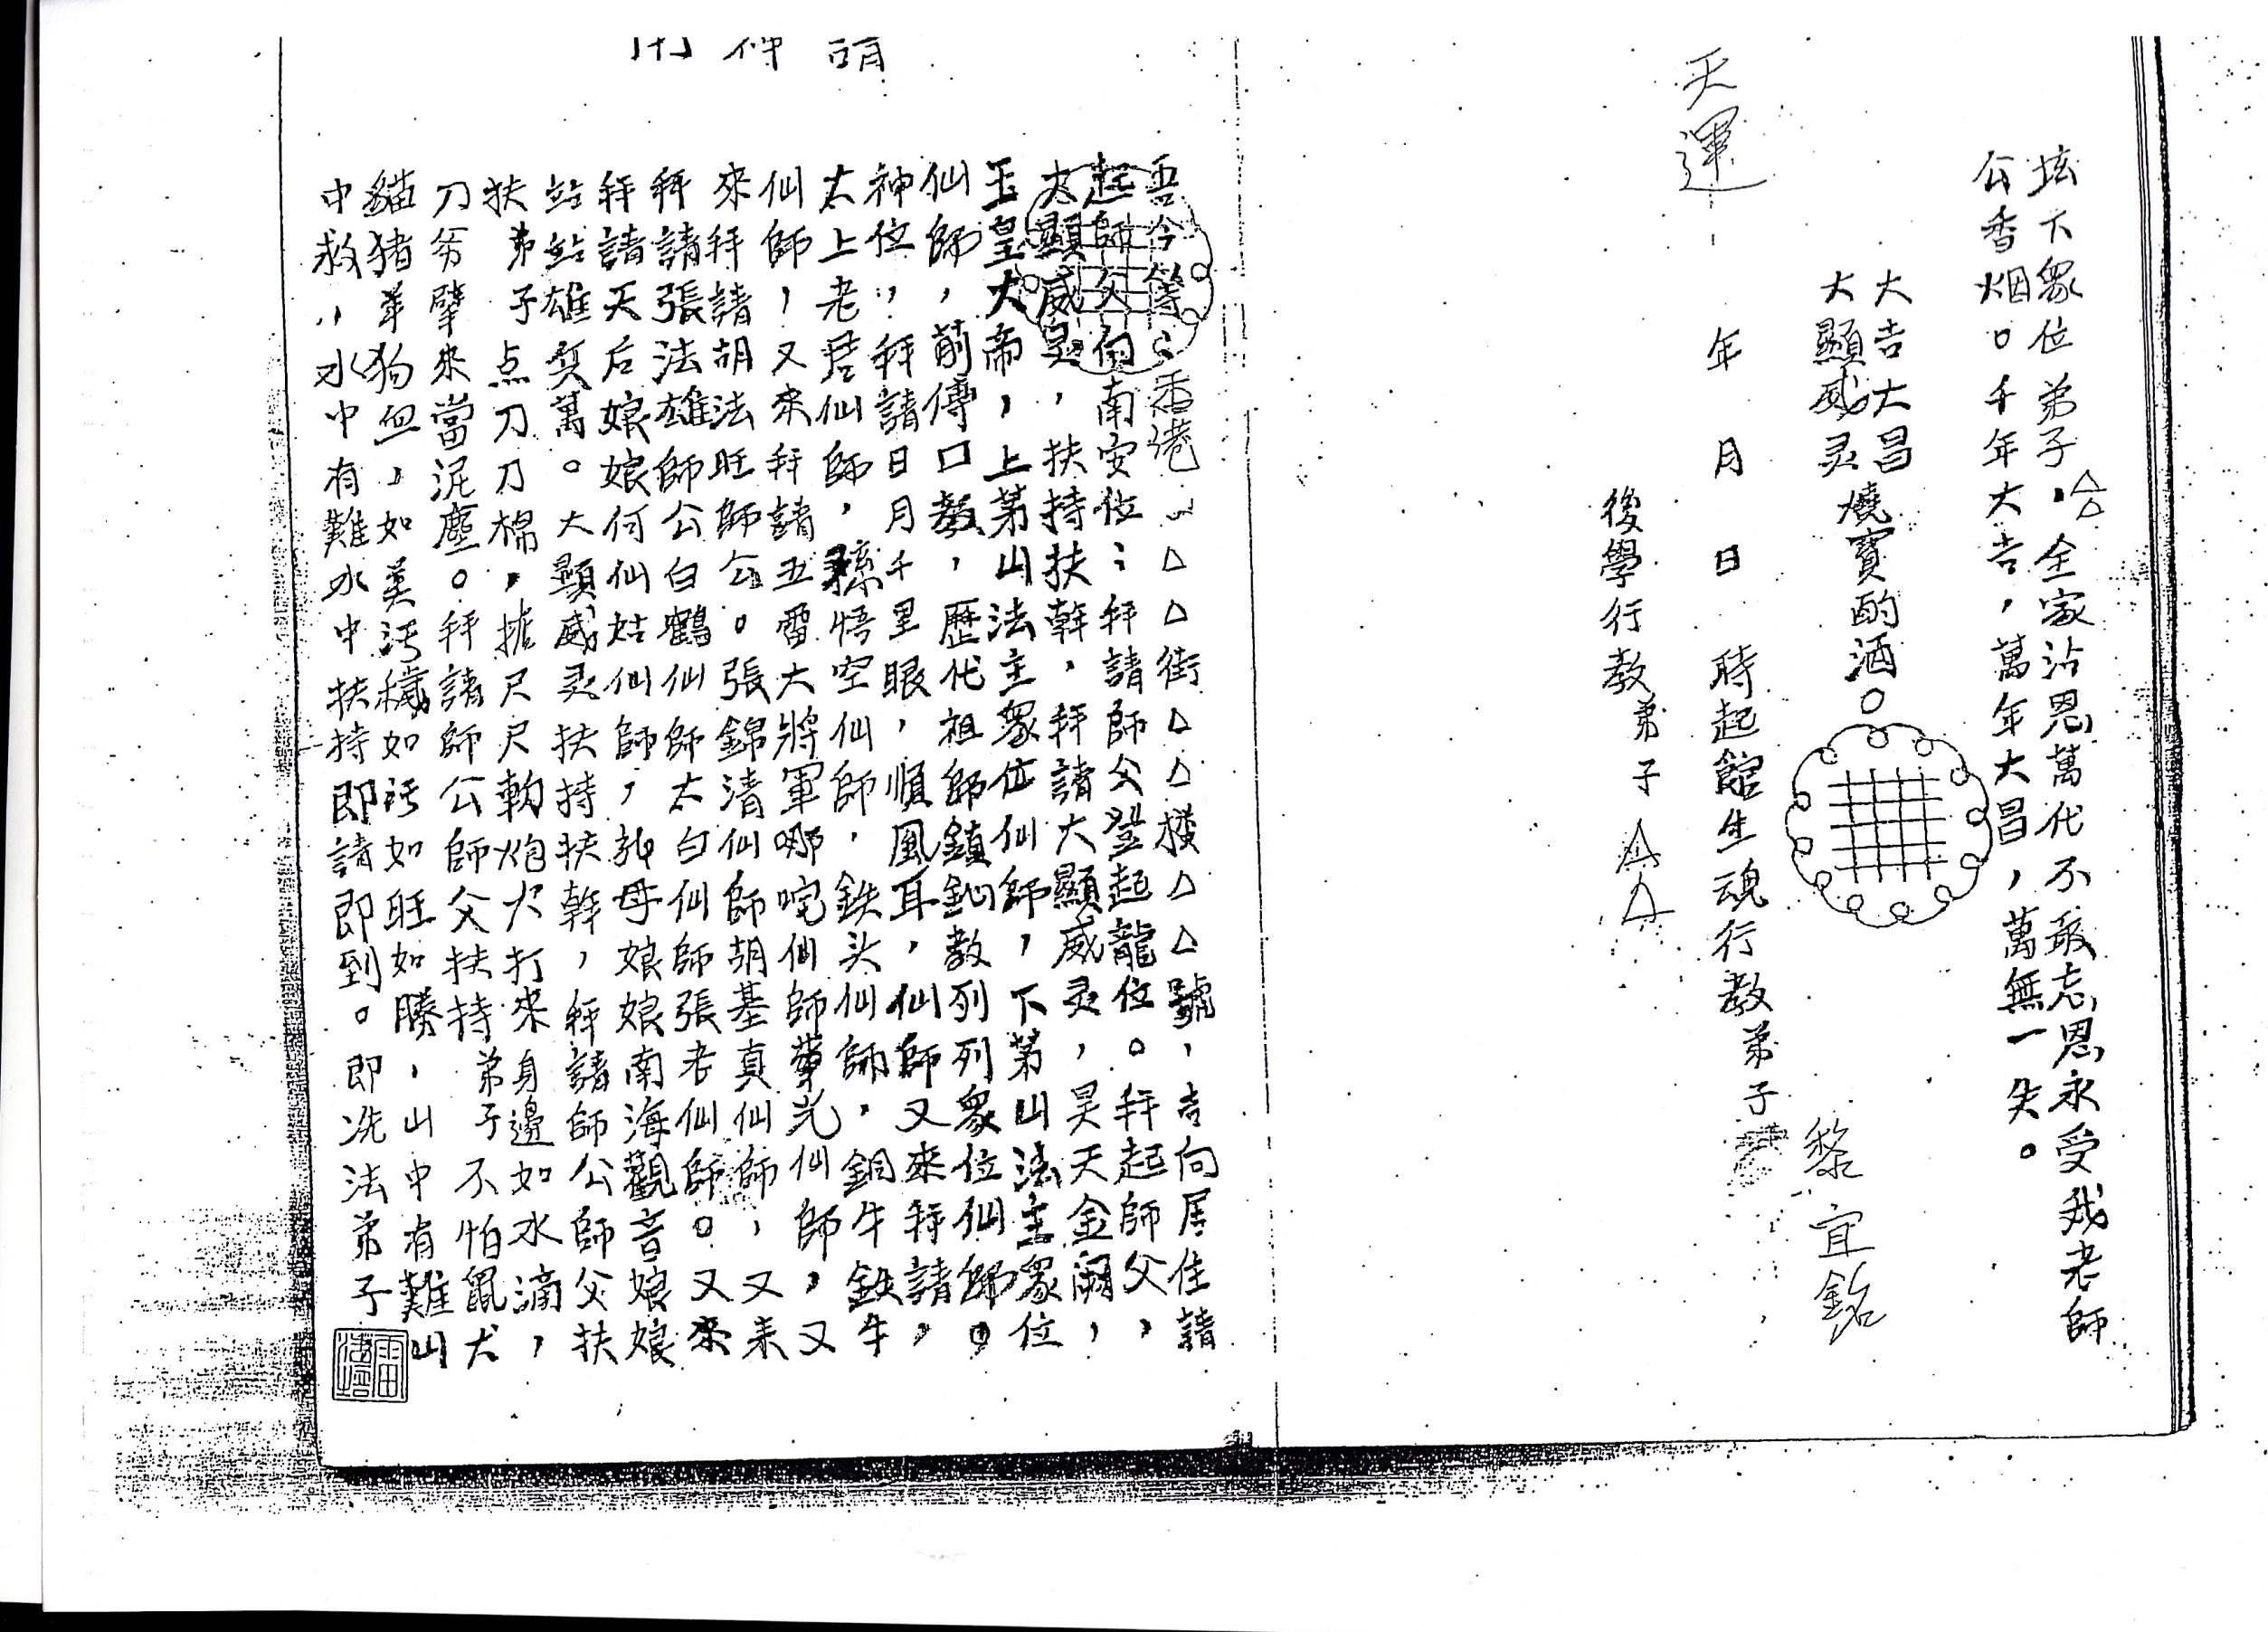 坛下衆位弟子,△△全家沾恩萬代不敢忘恩永受我老師
公香烟。千年大吉,萬年大昌,萬無一失。
大吉大昌
大顯威灵燒寳酌酒。
天運 年 月 日 時起館生魂行教弟子
黎宜銘
後學行教弟子△△△
請神
吾今等:香港△△街△△楼△△號,吉向居住請
起師父向南安位:拜請師父登起龍位。拜起師父,
大顯威灵,扶持扶幹,拜請大顯威灵,昊天金闕,
玉皇大帝,上茅山法主衆位仙師,下茅山法主衆位
仙師,前傳口教,歷代祖師鎮教列列衆位仙師。
神位,拜請日月千里眼,順風耳,仙師又來拜請,
太上老君仙師,孫悟空仙師,鉄头仙師,銅牛鉄牛
仙師,又來拜請五雷大將軍哪吒仙師華光仙師,又
來拜請胡法旺師公。張錦清仙師胡基真仙師,又来
拜請張法雄師公白鶴仙師太白仙師張老仙師。又來
拜請天后娘娘何仙姑仙師,母娘娘南海觀音娘娘
站站雄兵萬。大顯威灵扶持扶幹,拜請師公師父扶
扶弟子点刀刀棉,尺尺軟炮火打來身邊如水滴,
刀劈來當泥塵。拜請師公師父扶持弟子不怕鼠犬
貓猪羊狗血,如糞污穢如污如旺如勝,山中有難山
中救,水中有難水中扶持即請即到。即洗法弟子